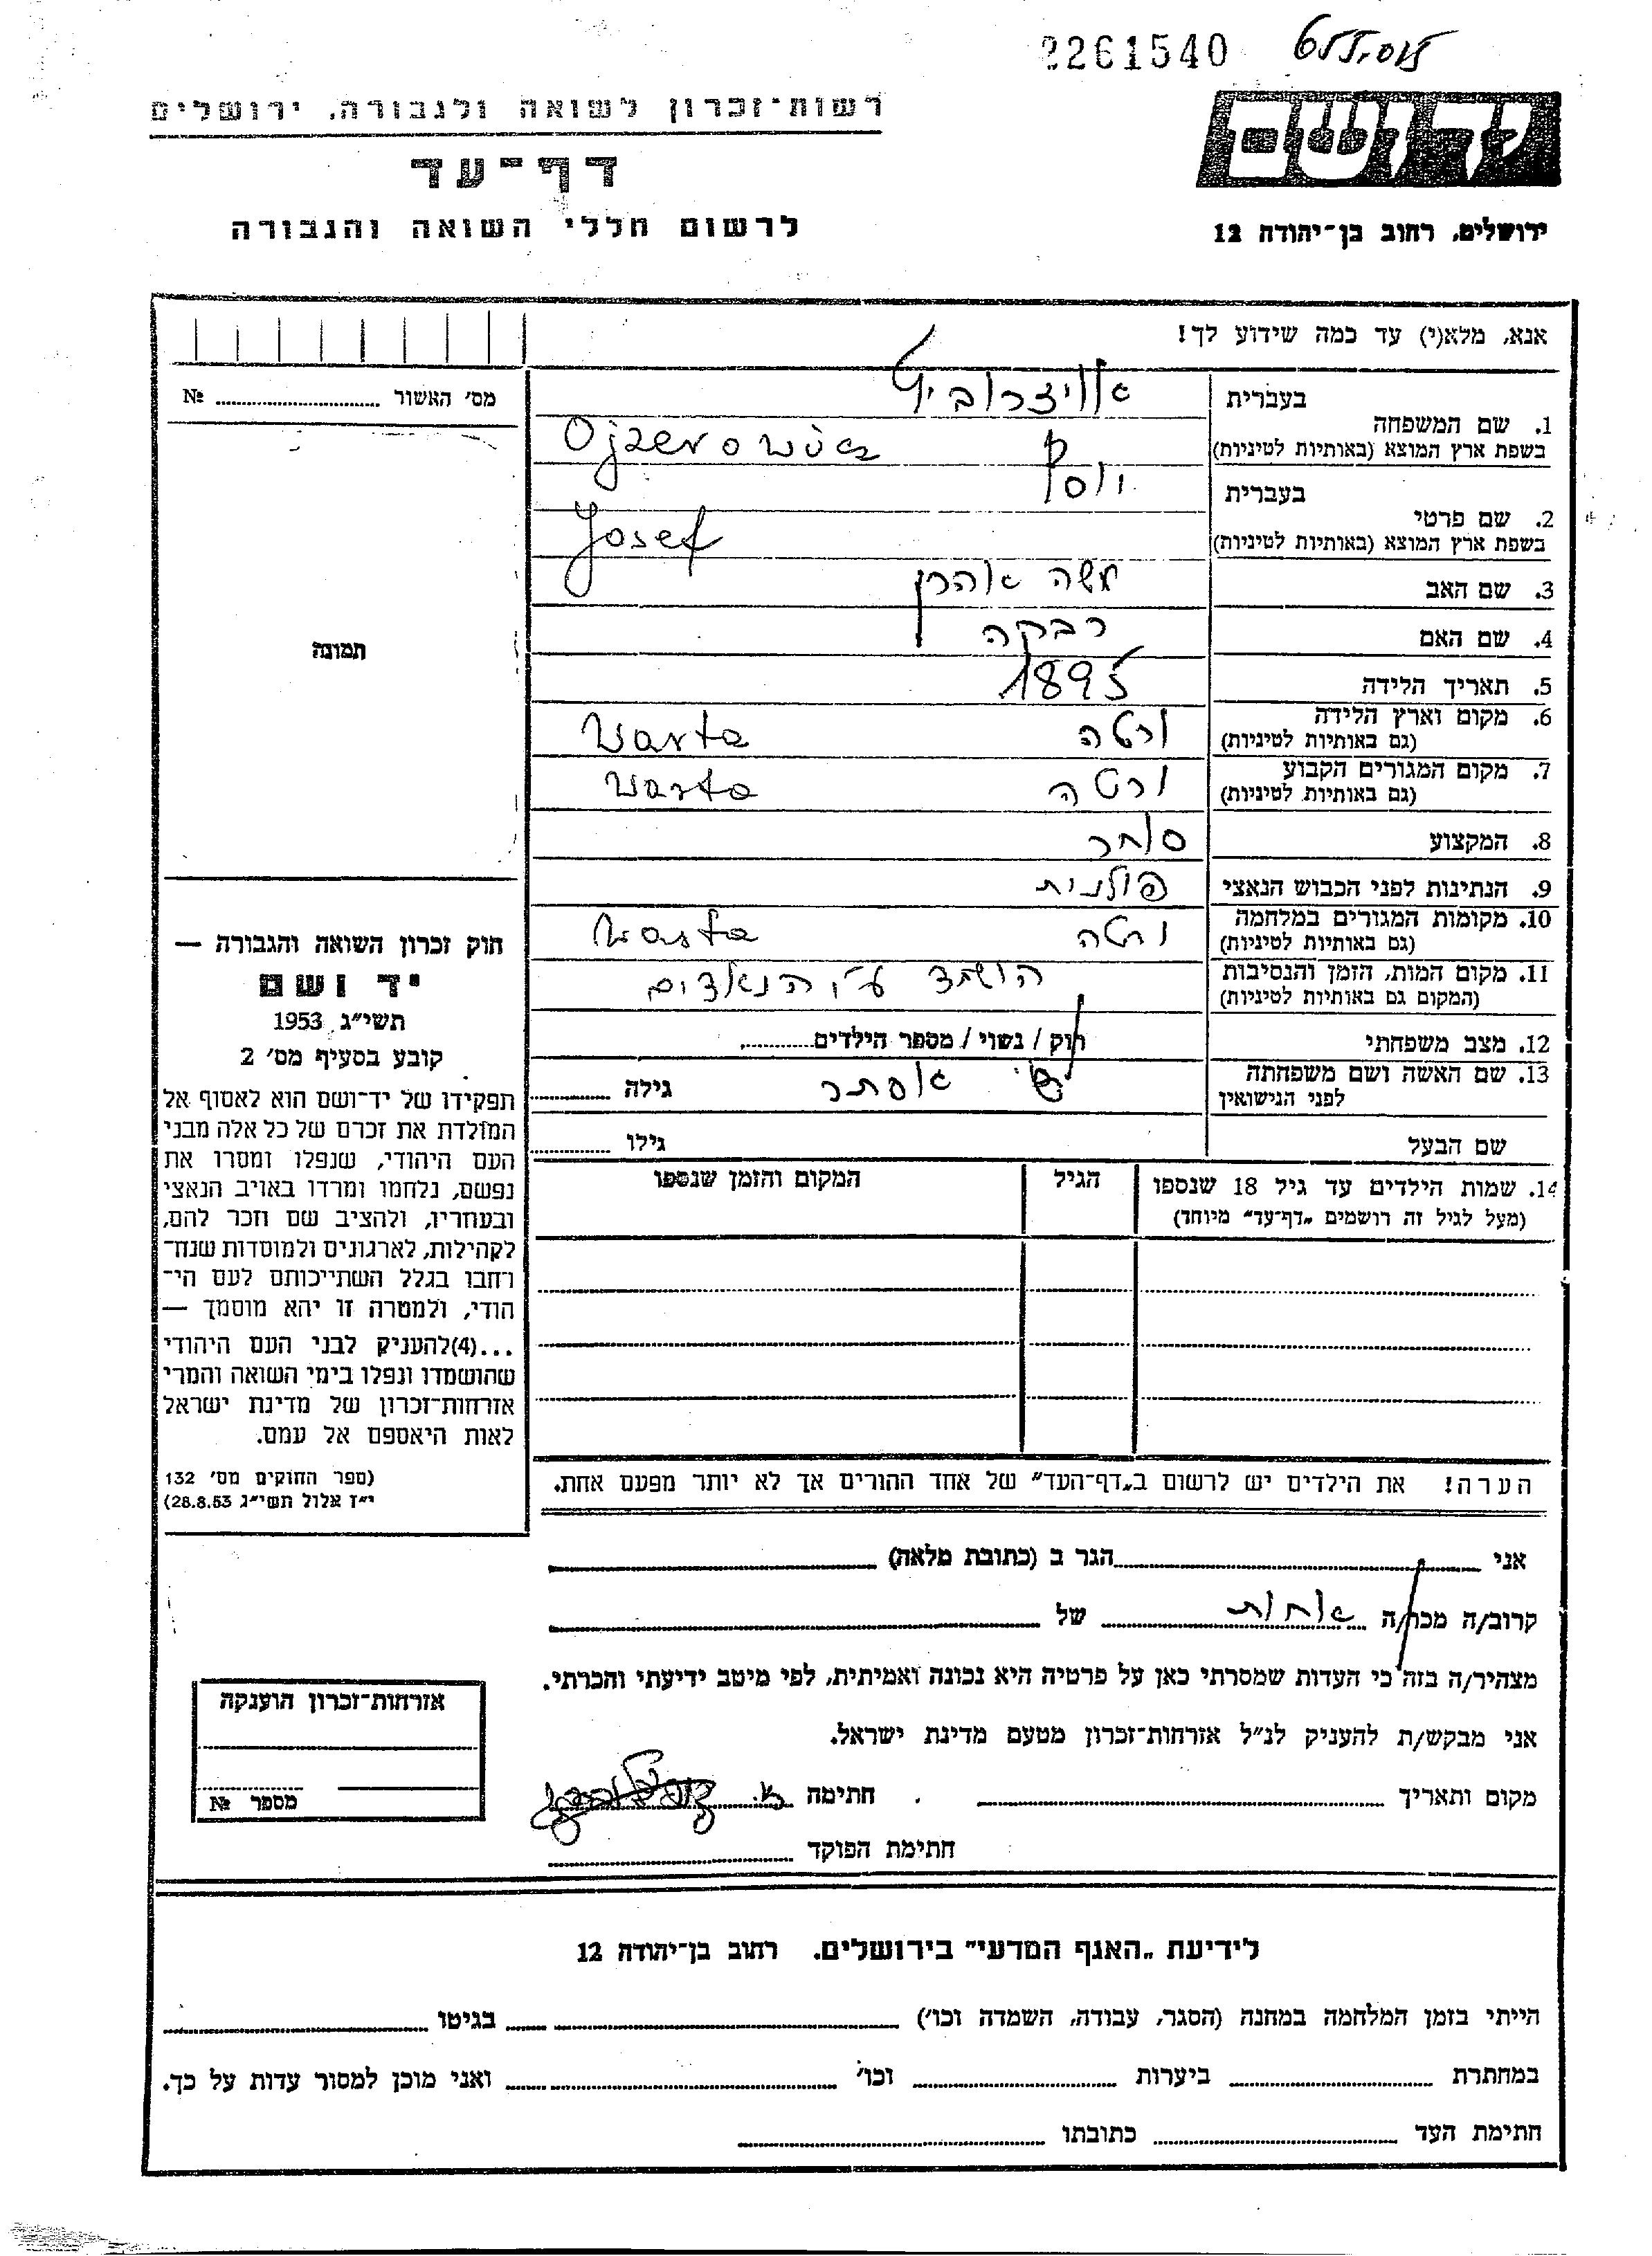 2261540
רשות־זכרון לשואה ולגבורה, ירושלים
דף־עד
לרשום חללי השואה והגבורה
ידושם
ירושלים, רחוב בן־יהודה 12
אנא, מלא(י) עד כמה שידוע לך!
1. שם המשפחה בעברית
בשפת ארץ המוצא (באותיות לטיניות) Ojzerowicz
2. שם פרטי בעברית יוסף
בשפת ארץ המוצא (באותיות לטיניות) Josef
3. שם האב משה אהרן
4. שם האם רבקה
5. תאריך הלידה 1895
6. מקום וארץ הלידה ורטה Warta
(גם באותיות לטיניות)
7. מקום המגורים הקבוע ורטה Warta
(גם באותיות לטיניות)
8. המקצוע סוחר
9. הנתינות לפני הכבוש הנאצי פולנית
10. מקומות המגורים במלחמה ורטה Warta
(גם באותיות לטיניות)
11. מקום המות, הזמן והנסיבות הושמד ע״י הנאצים
(המקום גם באותיות לטיניות)
12. מצב משפחתי רוק / נשוי / מספר הילדים
13. שם האשה ושם משפחתה אסתר גילה
לפני הנישואין
שם הבעל גילו
14. שמות הילדים עד גיל 18 שנספו הגיל המקום והזמן שנספו
(מעל לגיל זה רושמים „דף־עד״ מיוחד)
הערה! את הילדים יש לרשום ב„דף־העד״ של אחד ההורים אך לא יותר מפעם אחת.
מס׳ האשור №
תמונה
חוק זכרון השואה והגבורה —
יד ושם
תשי״ג 1953
קובע בסעיף מס׳ 2
תפקידו של יד־ושם הוא לאסוף אל
המולדת את זכרם של כל אלה מבני
העם היהודי, שנפלו ומסרו את
נפשם, נלחמו ומרדו באויב הנאצי
ובעוזריו, ולהציב שם וזכר להם,
לקהילות, לארגונים ולמוסדות שנח־
רחבו בגלל השתייכותם לעם הי־
הודי, ולמטרה זו יהא מוסמך —
...(4)להעניק לבני העם היהודי
שהושמדו ונפלו בימי השואה והמרי
אזרחות־זכרון של מדינת ישראל
לאות היאספם אל עמם.
(ספר החוקים מס׳ 132
י״ז אלול תשי״ג 28.8.53)
אני הגר ב (כתובת מלאה)
קרוב/ה מכר/ה אחות של
מצהיר/ה בזה כי העדות שמסרתי כאן על פרטיה היא נכונה ואמיתית, לפי מיטב ידיעתי והכרתי.
אני מבקש/ת להעניק לנ״ל אזרחות־זכרון מטעם מדינת ישראל.
מקום ותאריך חתימה
חתימת הפוקד
אזרחות־זכרון הוענקה
מספר №
לידיעת „האגף המדעי״ בירושלים. רחוב בן־יהודה 12
הייתי בזמן המלחמה במחנה (הסגר, עבודה, השמדה וכו׳) בגיטו
במחתרת ביערות וכו׳ ואני מוכן למסור עדות על כך.
חתימת העד כתובתו